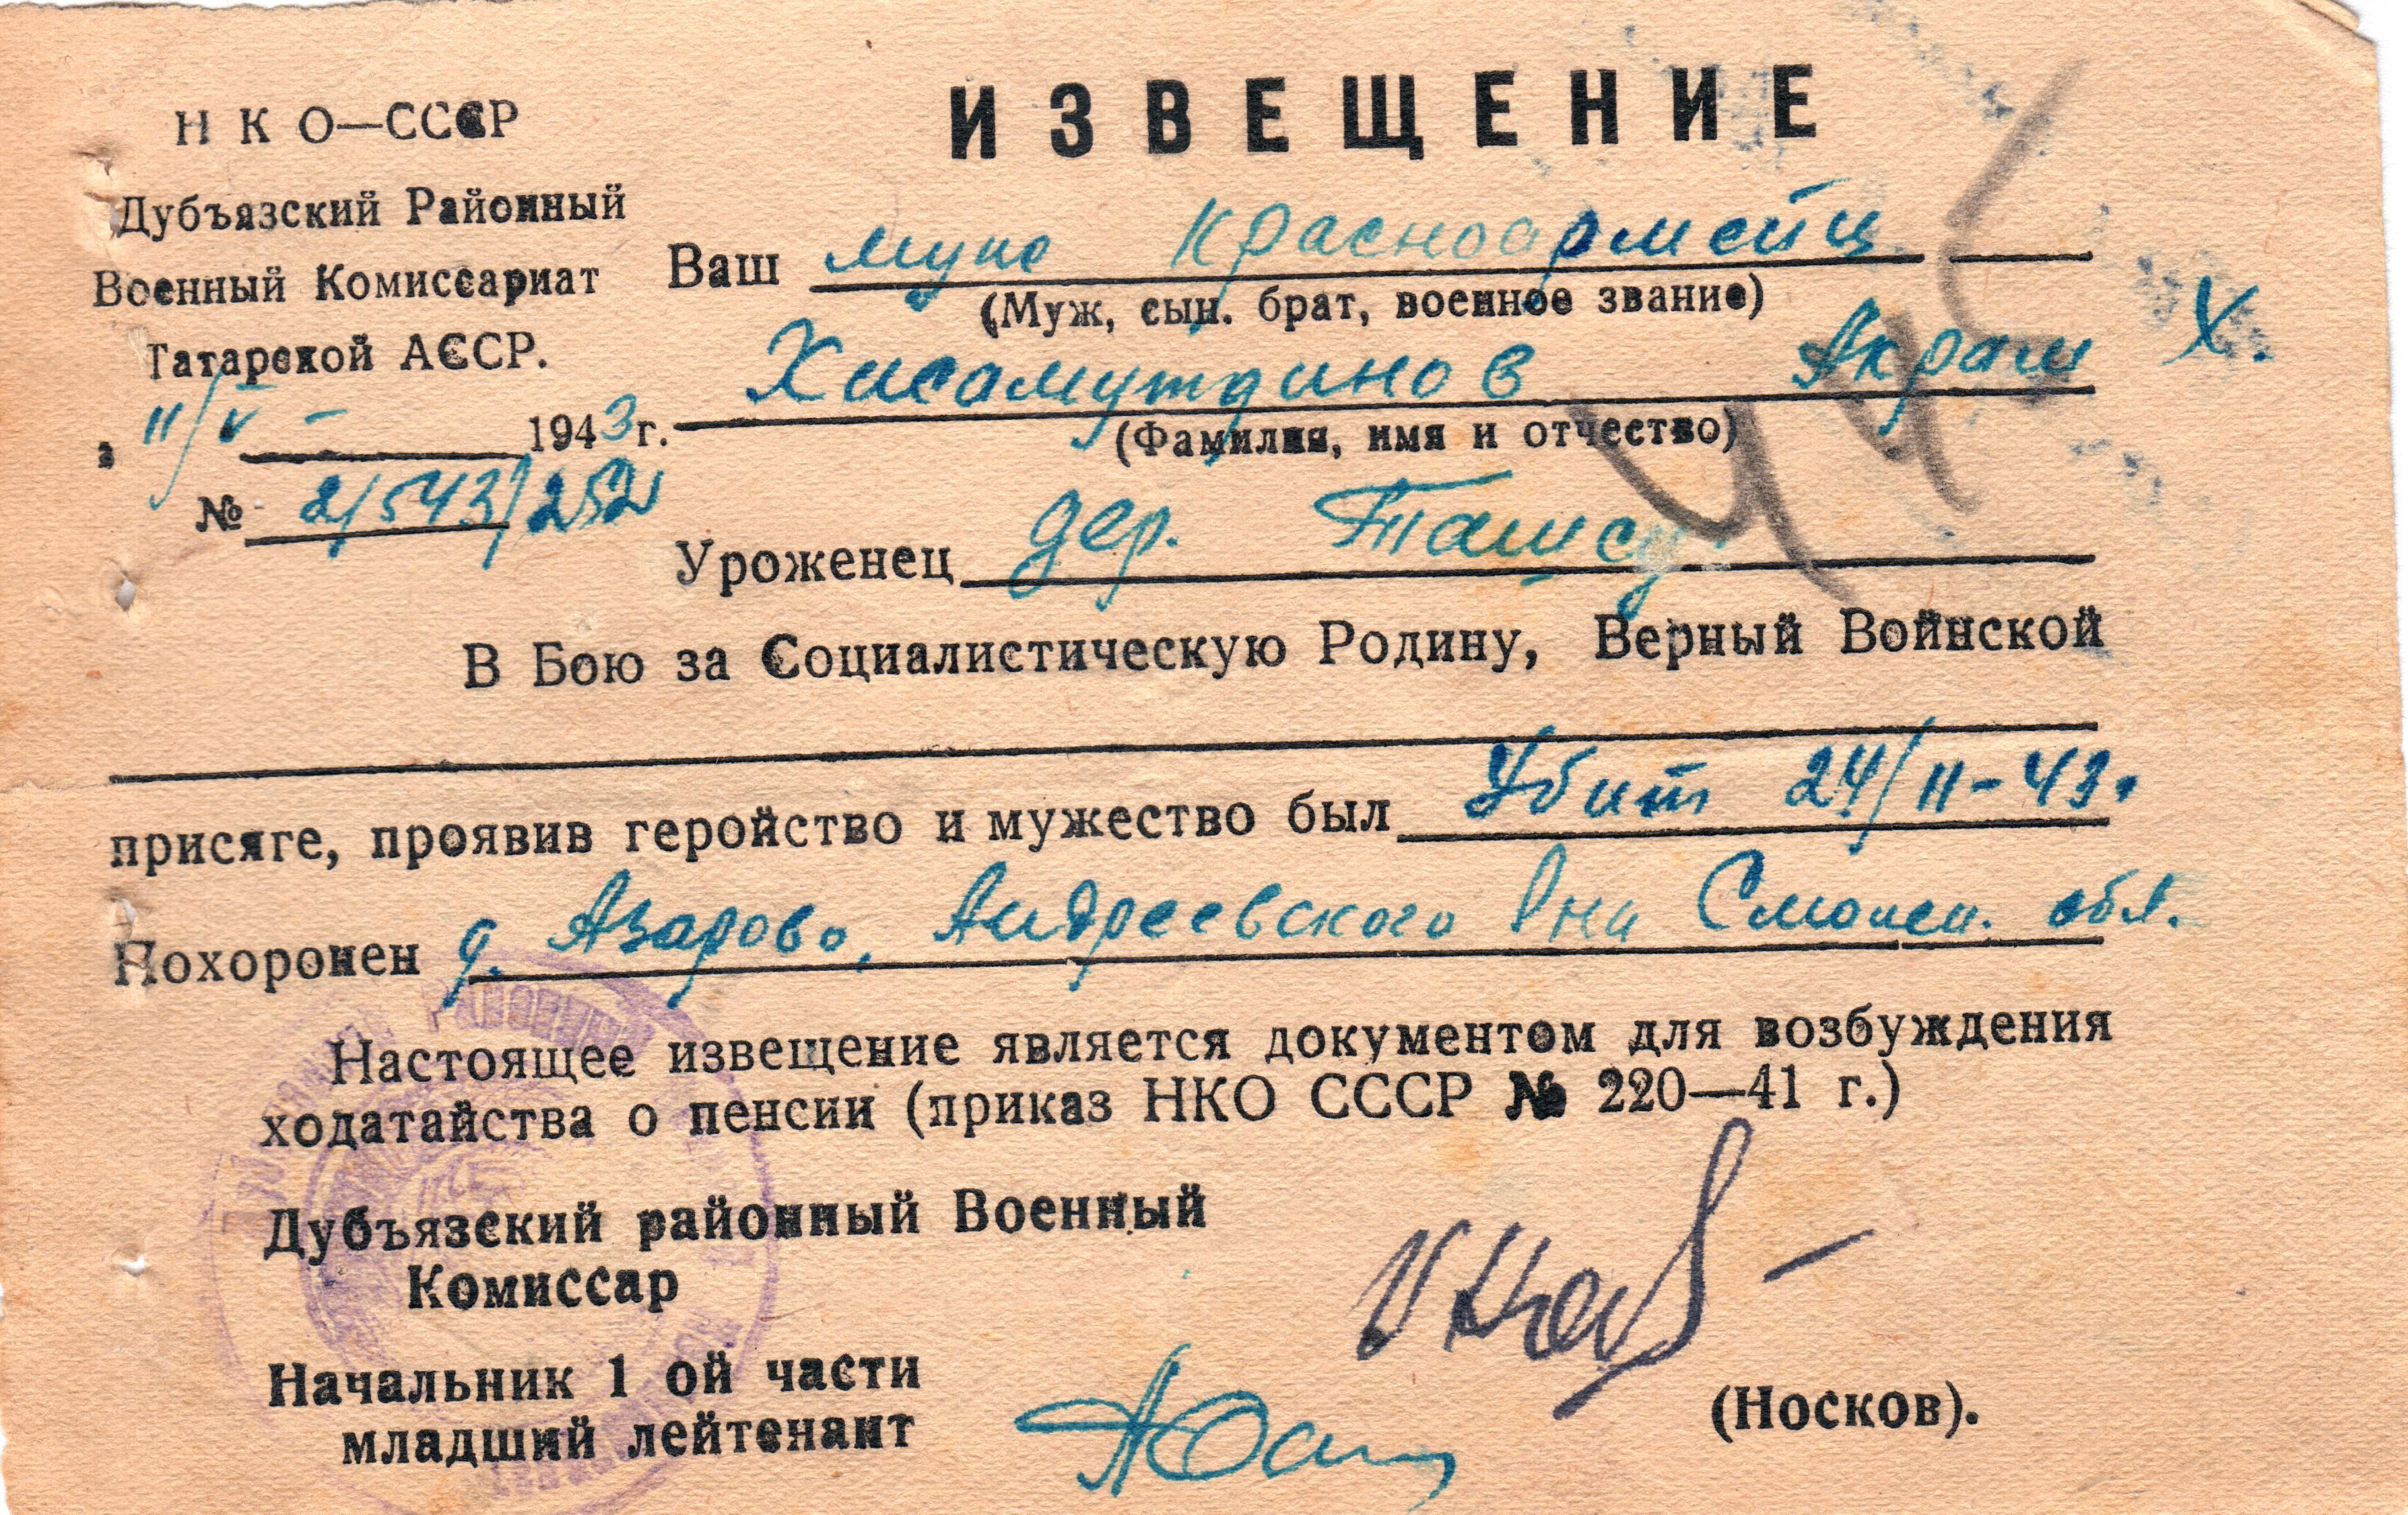 НКО—СССР
Дубъязский Районный
Военный Комиссариат
Татарской АССР.
11/V - 1943 г.
№ 2/543/252
ИЗВЕЩЕНИЕ
Ваш муж красноармейц
(Муж, сын. брат, военное звание)
Хисамутдинов Акрам Х.
(Фамилия, имя и отчество)
Уроженец дер. Ташсу
В Бою за Социалистическую Родину, Верный Воинской
присяге, проявив геройство и мужество был Убит 24/II-43г.
Похоронен д. Азарово, Андреевского Рна Смолен. обл.
Настоящее извещение является документом для возбуждения
ходатайства о пенсии (приказ НКО СССР № 220—41 г.)
Дубъязский районный Военный
Комиссар
Начальник 1 ой части
младший лейтенант
(Носков).